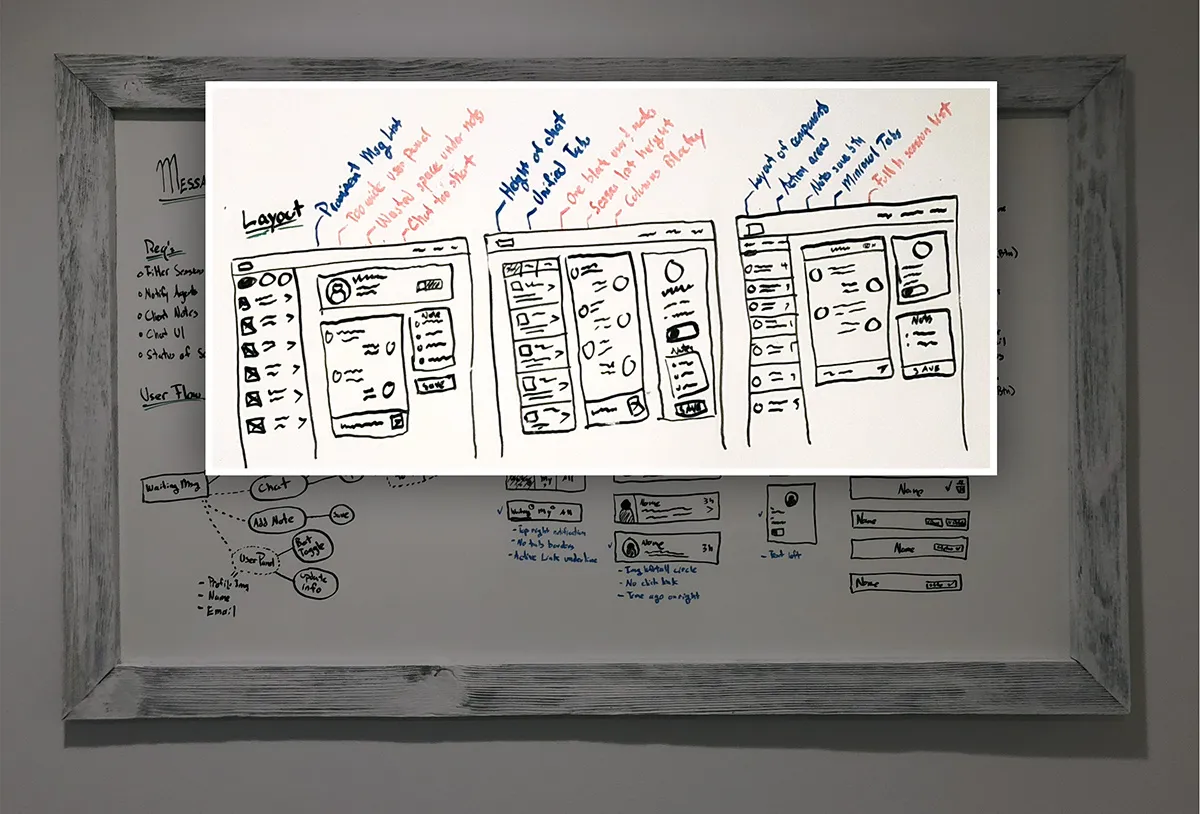 Messa
Req's
Filter Session
Notify Agents
Chat Notes
Chat UI
Status of S
User Flow
Layout
Prominent Msg List
Too wide user panel
Wasted space under notes
Chat too short
Note
SAVE
Height of chat
Unified Tabs
One block over notes
Sesson list height
Columns Blocky
Notes
SAVE
Layout of component
Action area
Note save btn
Minimal Tabs
Full h session list
Nots
SAVE
Btn)
Btn)
Waiting Msg
Chat
Add Note
Save
User Panel
Bot Toggle
Update info
- Profile Img
- Name
- Email
My All
- Top right notification
- No tab borders
- Active Link underline
Name 3h
Name 3h
- Img left all circle
- No click link
- Time ago on right
- Text left
Name
Name
Name
Name